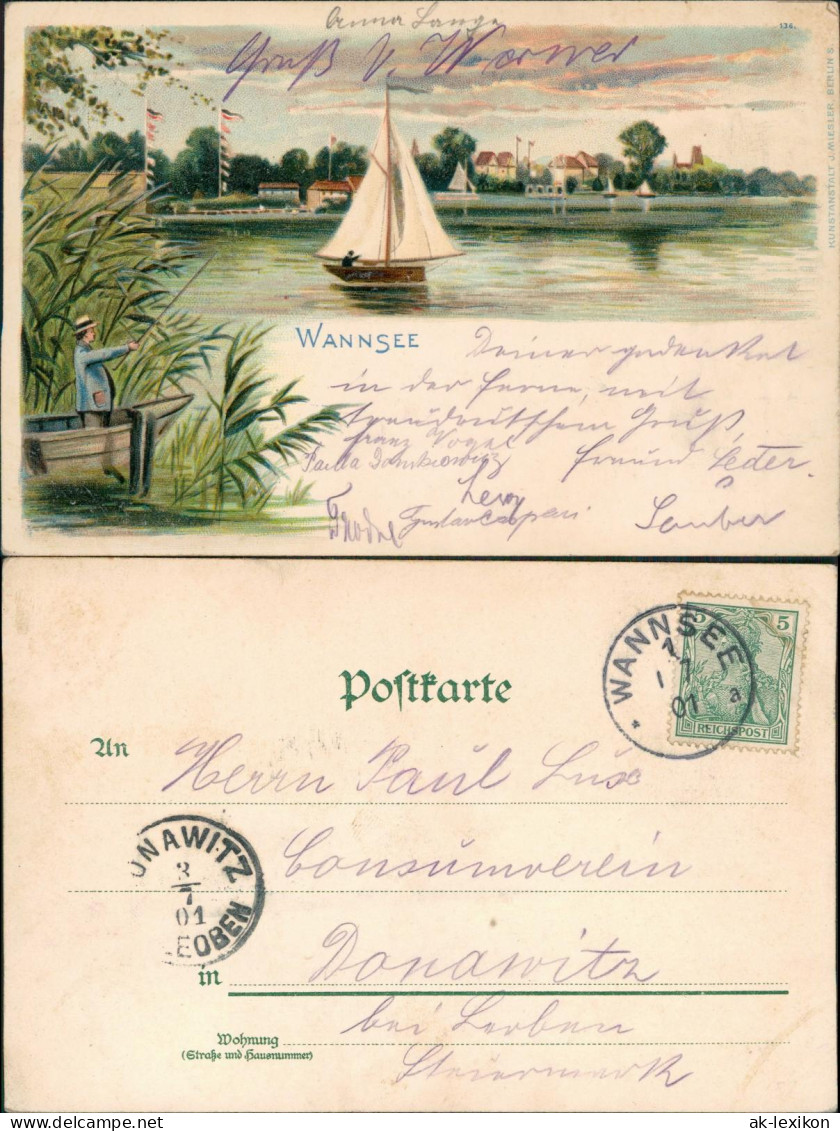 Anna Lange
136.
Gruß v. Werner
KUNSTANSTALT J. MIESLER, BERLIN S.
WANNSEE
Deiner gedenket
in der Ferne, mit
treudeutschem Gruß,
Franz Vogel
Freund Peter.
Levy
Gustav Caspari
Postkarte
WANNSEE
1
7
01
a
5
REICHSPOST
An
Herrn Paul Lux
Consumverein
DONAWITZ
3
7
01
LEOBEN
in Donawitz
bei Leoben
Wohnung
(Straße und Hausnummer)
Steiermark
ak-lexikon